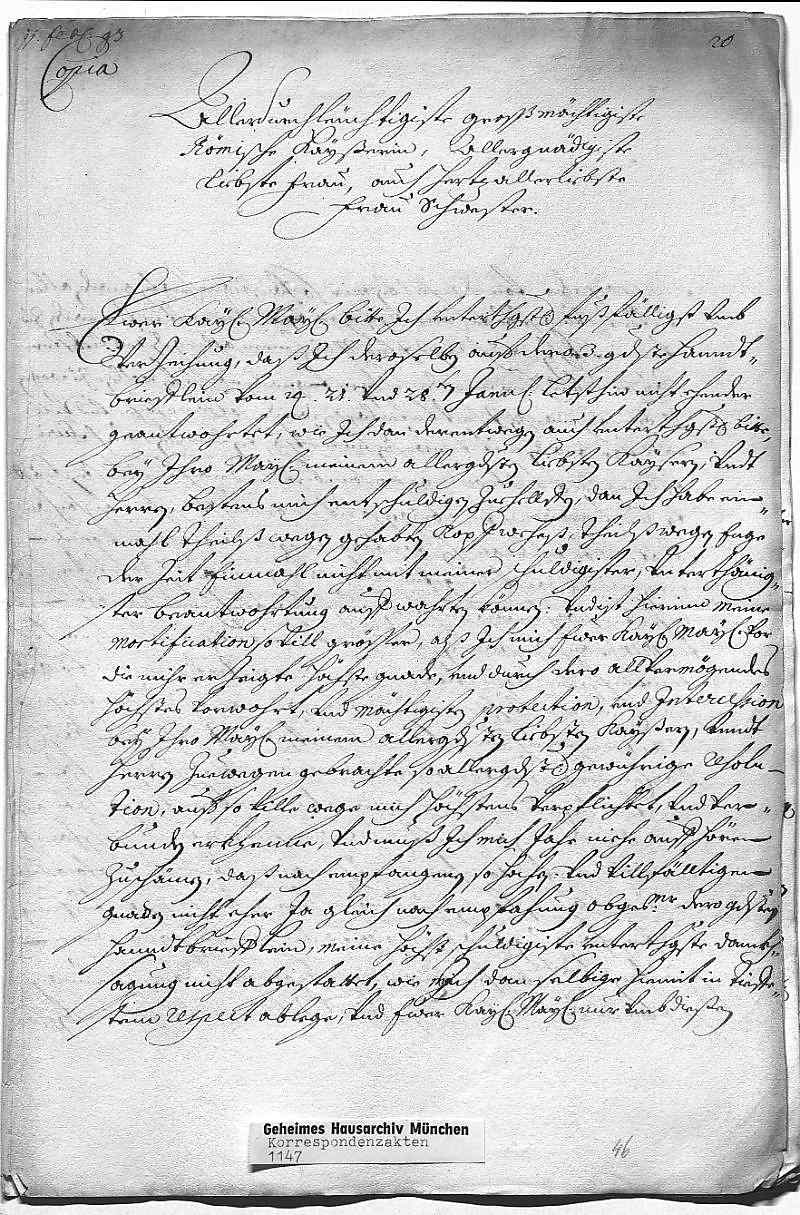 11. febr. 93
20
Copia
Allerdurchleüchtigiste großmächtigiste
Römische Kaÿßerin, Allergnädigiste
Liebste Frau, auch Hertzallerliebste
Frau Schwester.
Ewer Kaÿ. Maÿ. bitte Ich unterthgst fueßfälligst umb
Verzeichung, daß Ich deroselben auf dero gdste Handt-
briefflein vom 19. 21. und 28. Jan. letsthin nicht ehender
geantwohrtet, wie Ich dan derentwegen auch unterthgst bitte,
beÿ Ihro Maÿ. meinem allergdsten liebsten Kaÿßern, undt
Herrn, bestens mich entschuldigen zuhelffen, dan Ich habe ein-
mahl theilß wegen gehabten Kopfwehes, theilß wegen Enge
der Zeit Einmahl nicht mit meiner schuldigister, unterthänig-
ster beantwohrtung aufwahrten können: und ist hierinn meine
mortification so vill grösser, alß Ich mich Ewer Kaÿ. Maÿ. vor
die mihr erzeigte höchste gnade, und durch dero allvermögendes
höchstes vorwohrt, und mächtigiste protection, und Intercession
beÿ Ihro Maÿ. meinem allergdsten liebsten Kaÿßern, undt
Herrn zuwegen gebrachte so allergdst gewührige resolu-
tion, auf so ville wege mich höchstens verpflichtet, und ver-
bunden erkhenne, und muß Ich mich Jahr nicht aufhören
zuschämen, daß nach empfangenen so hohen und villfälltigen
gnaden nicht eher Ja gleich nach empfahung obge. dero gdsten
Handtbriefflein, meine höchst schuldigiste unterthgste danckh-
sagung nicht abgestattet, wie mich dan selbige hiemit in tieffe-
stem respect ablege, und Ewer Kaÿ. Maÿ. nur umb dießen
Geheimes Hausarchiv München
Korrespondenzakten
1147
46